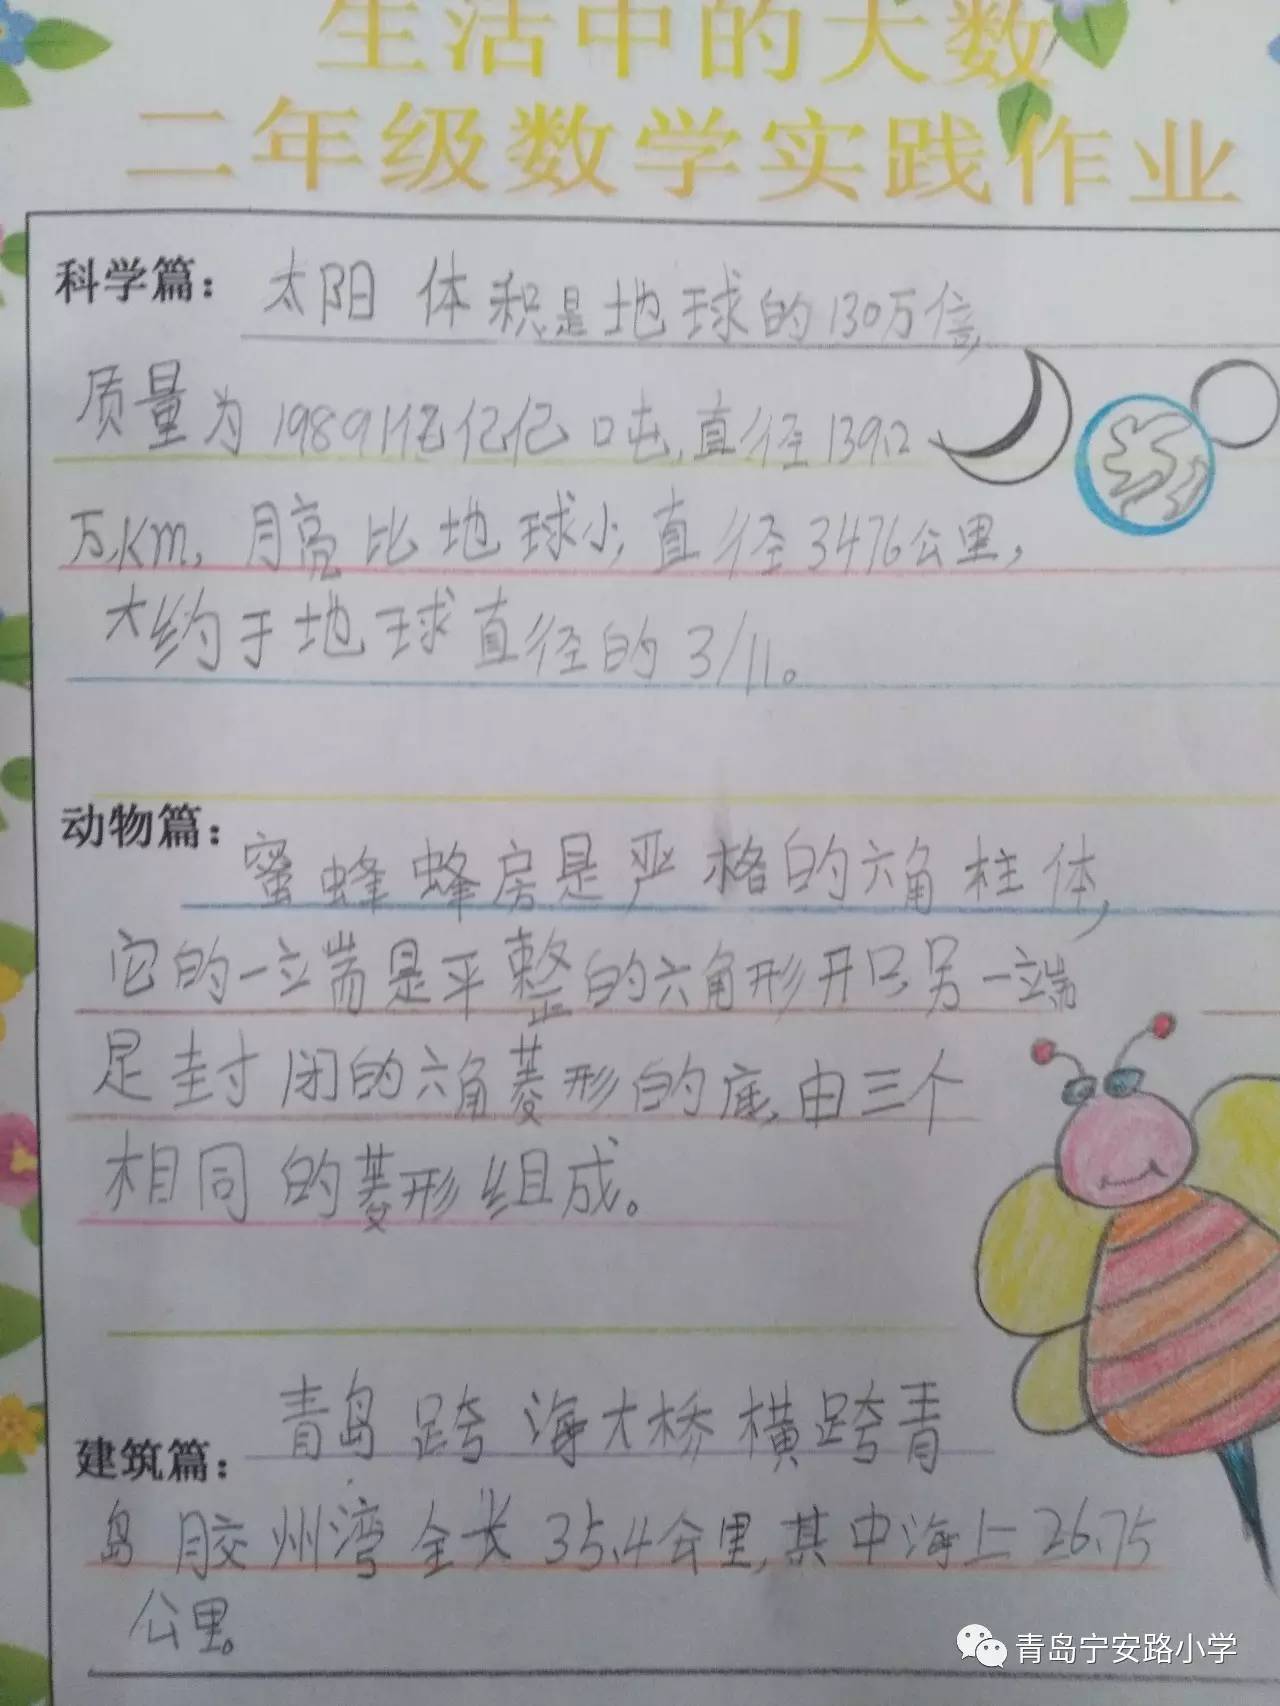 生活中的大数
二年级数学实践作业
科学篇：太阳体积是地球的130万倍，
质量为1989亿亿亿吨，直径139.2
万km，月亮比地球小，直径3476公里，
大约于地球直径的3/11。
动物篇：蜜蜂蜂房是严格的六角柱体，
它的一端是平整的六角形开口另一端
是封闭的六角菱形的底，由三个
相同的菱形组成。
建筑篇：青岛跨海大桥横跨青
岛胶州湾全长35.4公里，其中海上26.75
公里。
青岛宁安路小学